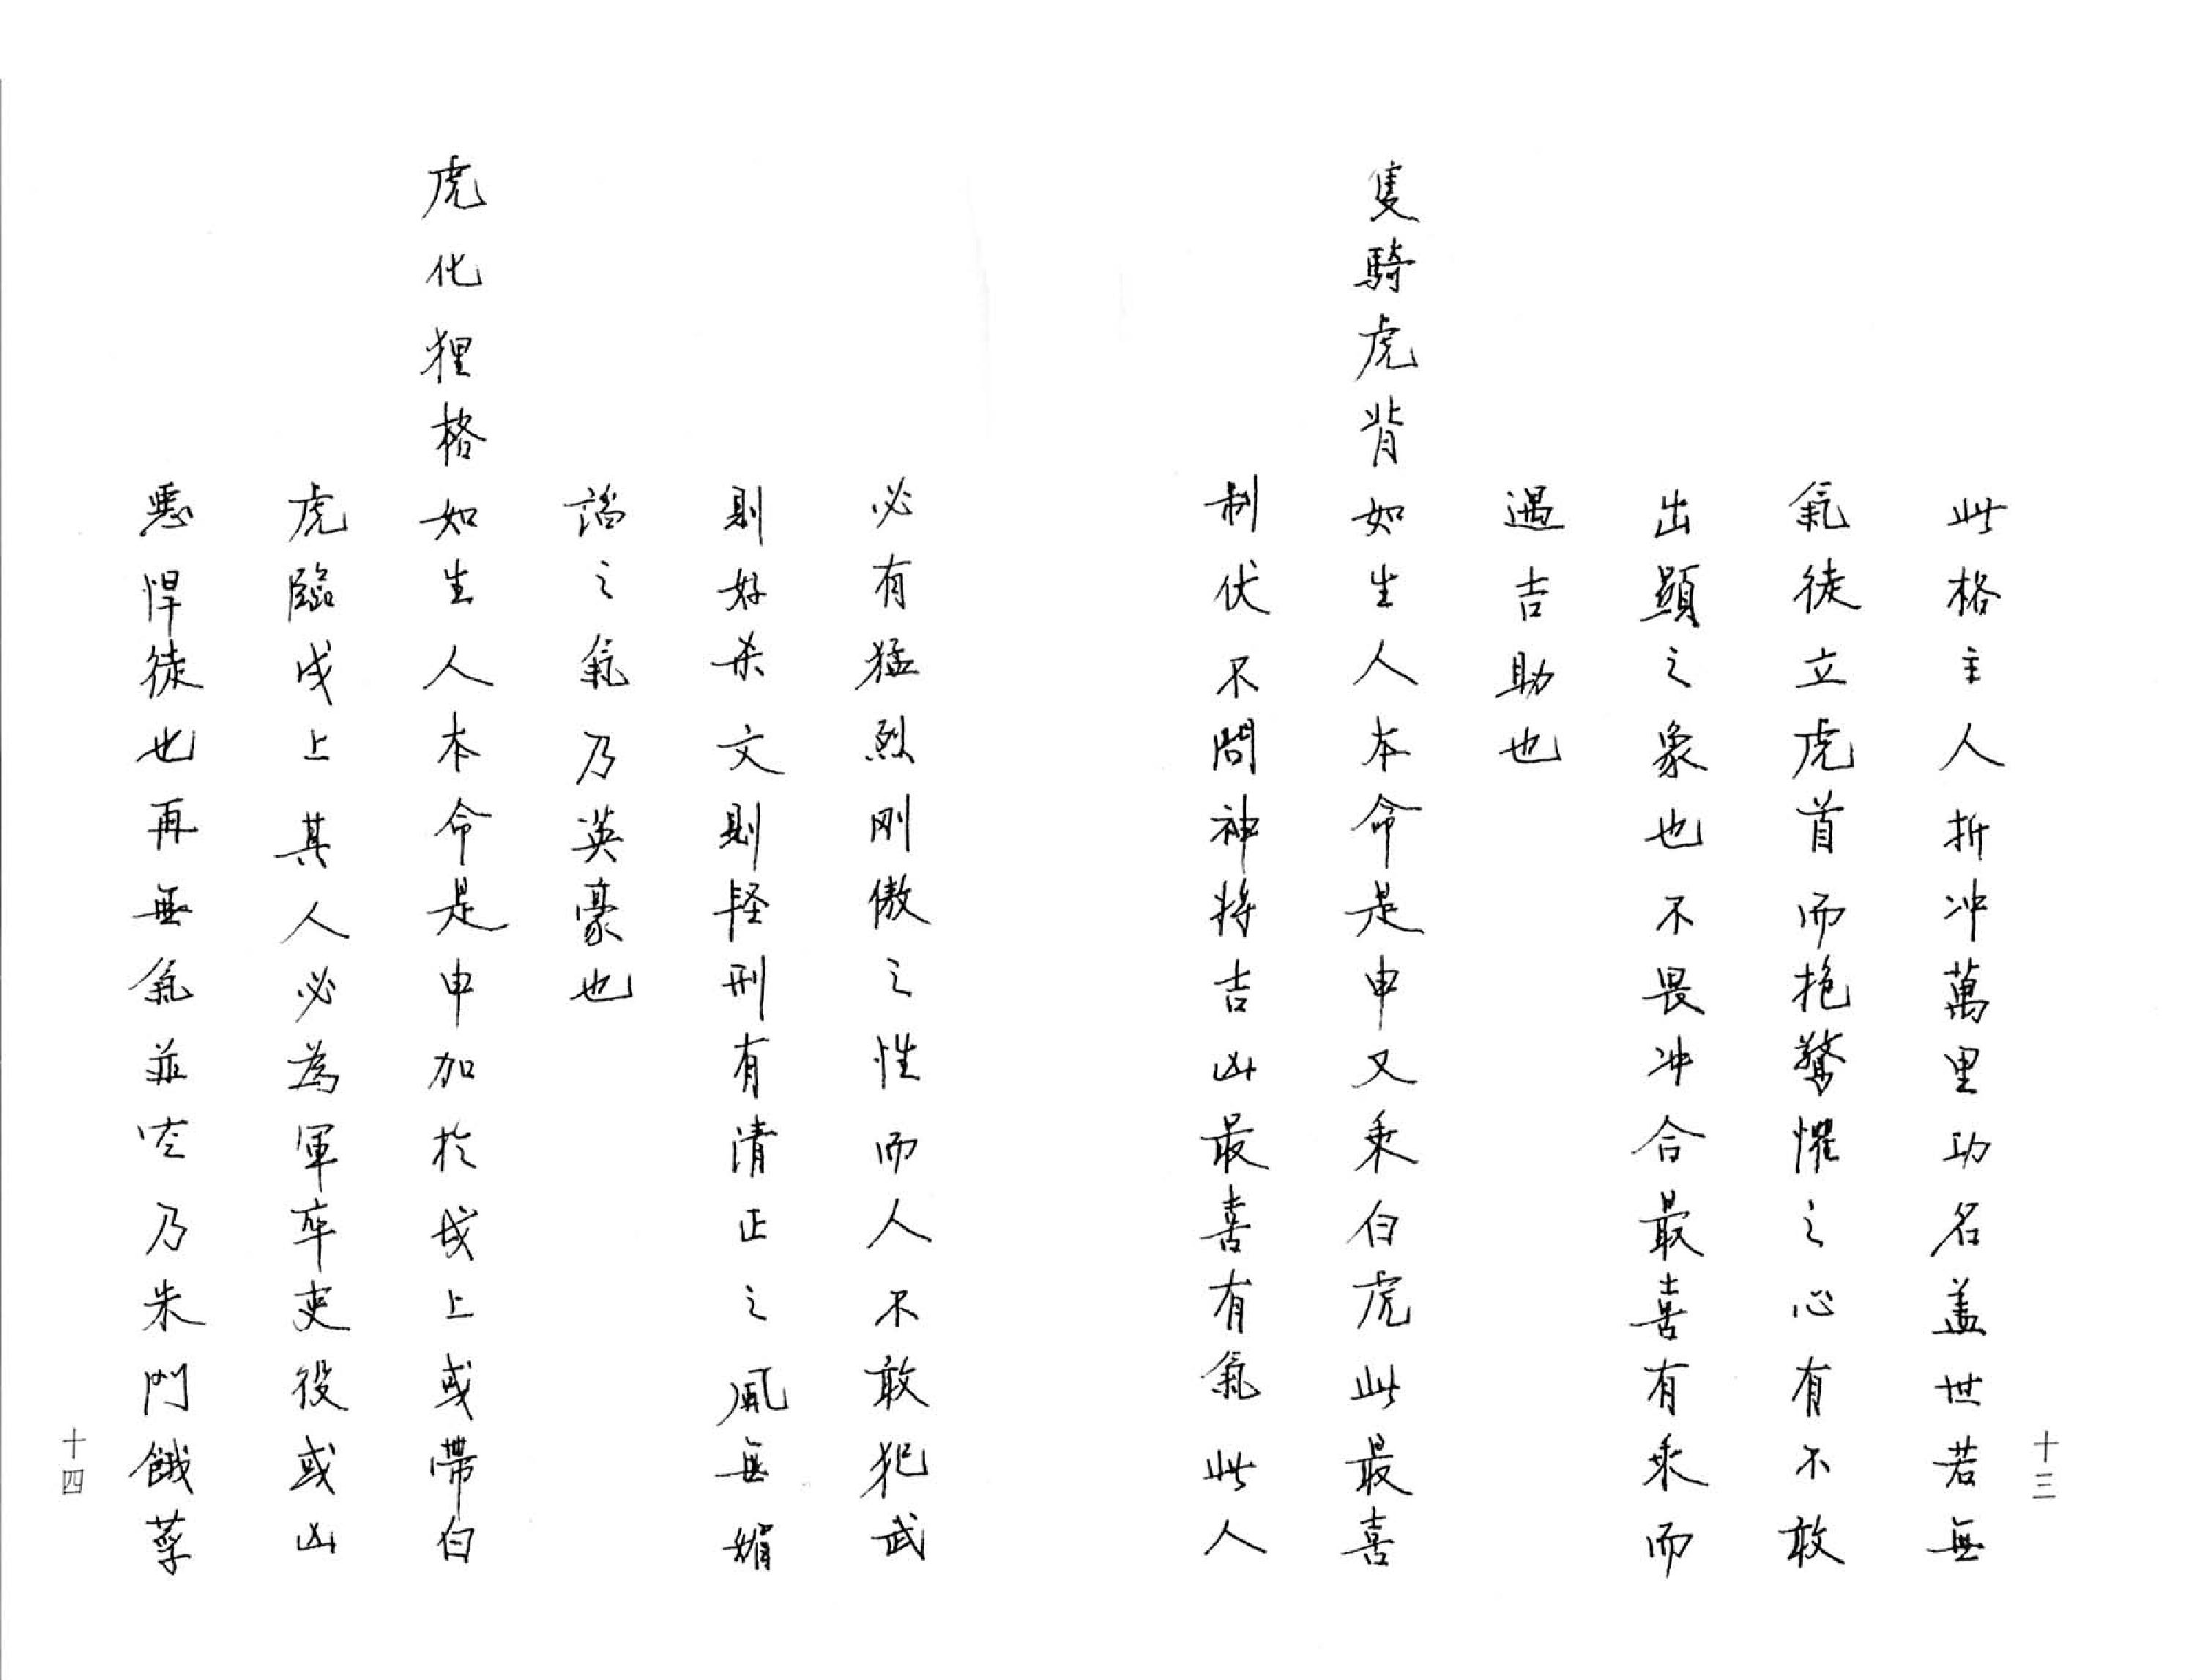 十三
此格主人折冲萬里功名盖世若無
氣徒立虎首而抱驚懼之心有不敢
出顯之象也不畏冲合最喜有乘而
遇吉助也
隻騎虎背如生人本命是申又乘白虎此最喜
制伏不問神将吉凶最喜有氣此人
必有猛烈刚傲之性而人不敢犯武
則好杀文則怪刑有清正之風無媚
謟之氣乃英豪也
虎化狸格如生人本命是申加於戌上或帶白
虎臨戌上其人必為軍卒吏役或凶
悪悍徒也再無氣並空乃朱門餓莩
十四